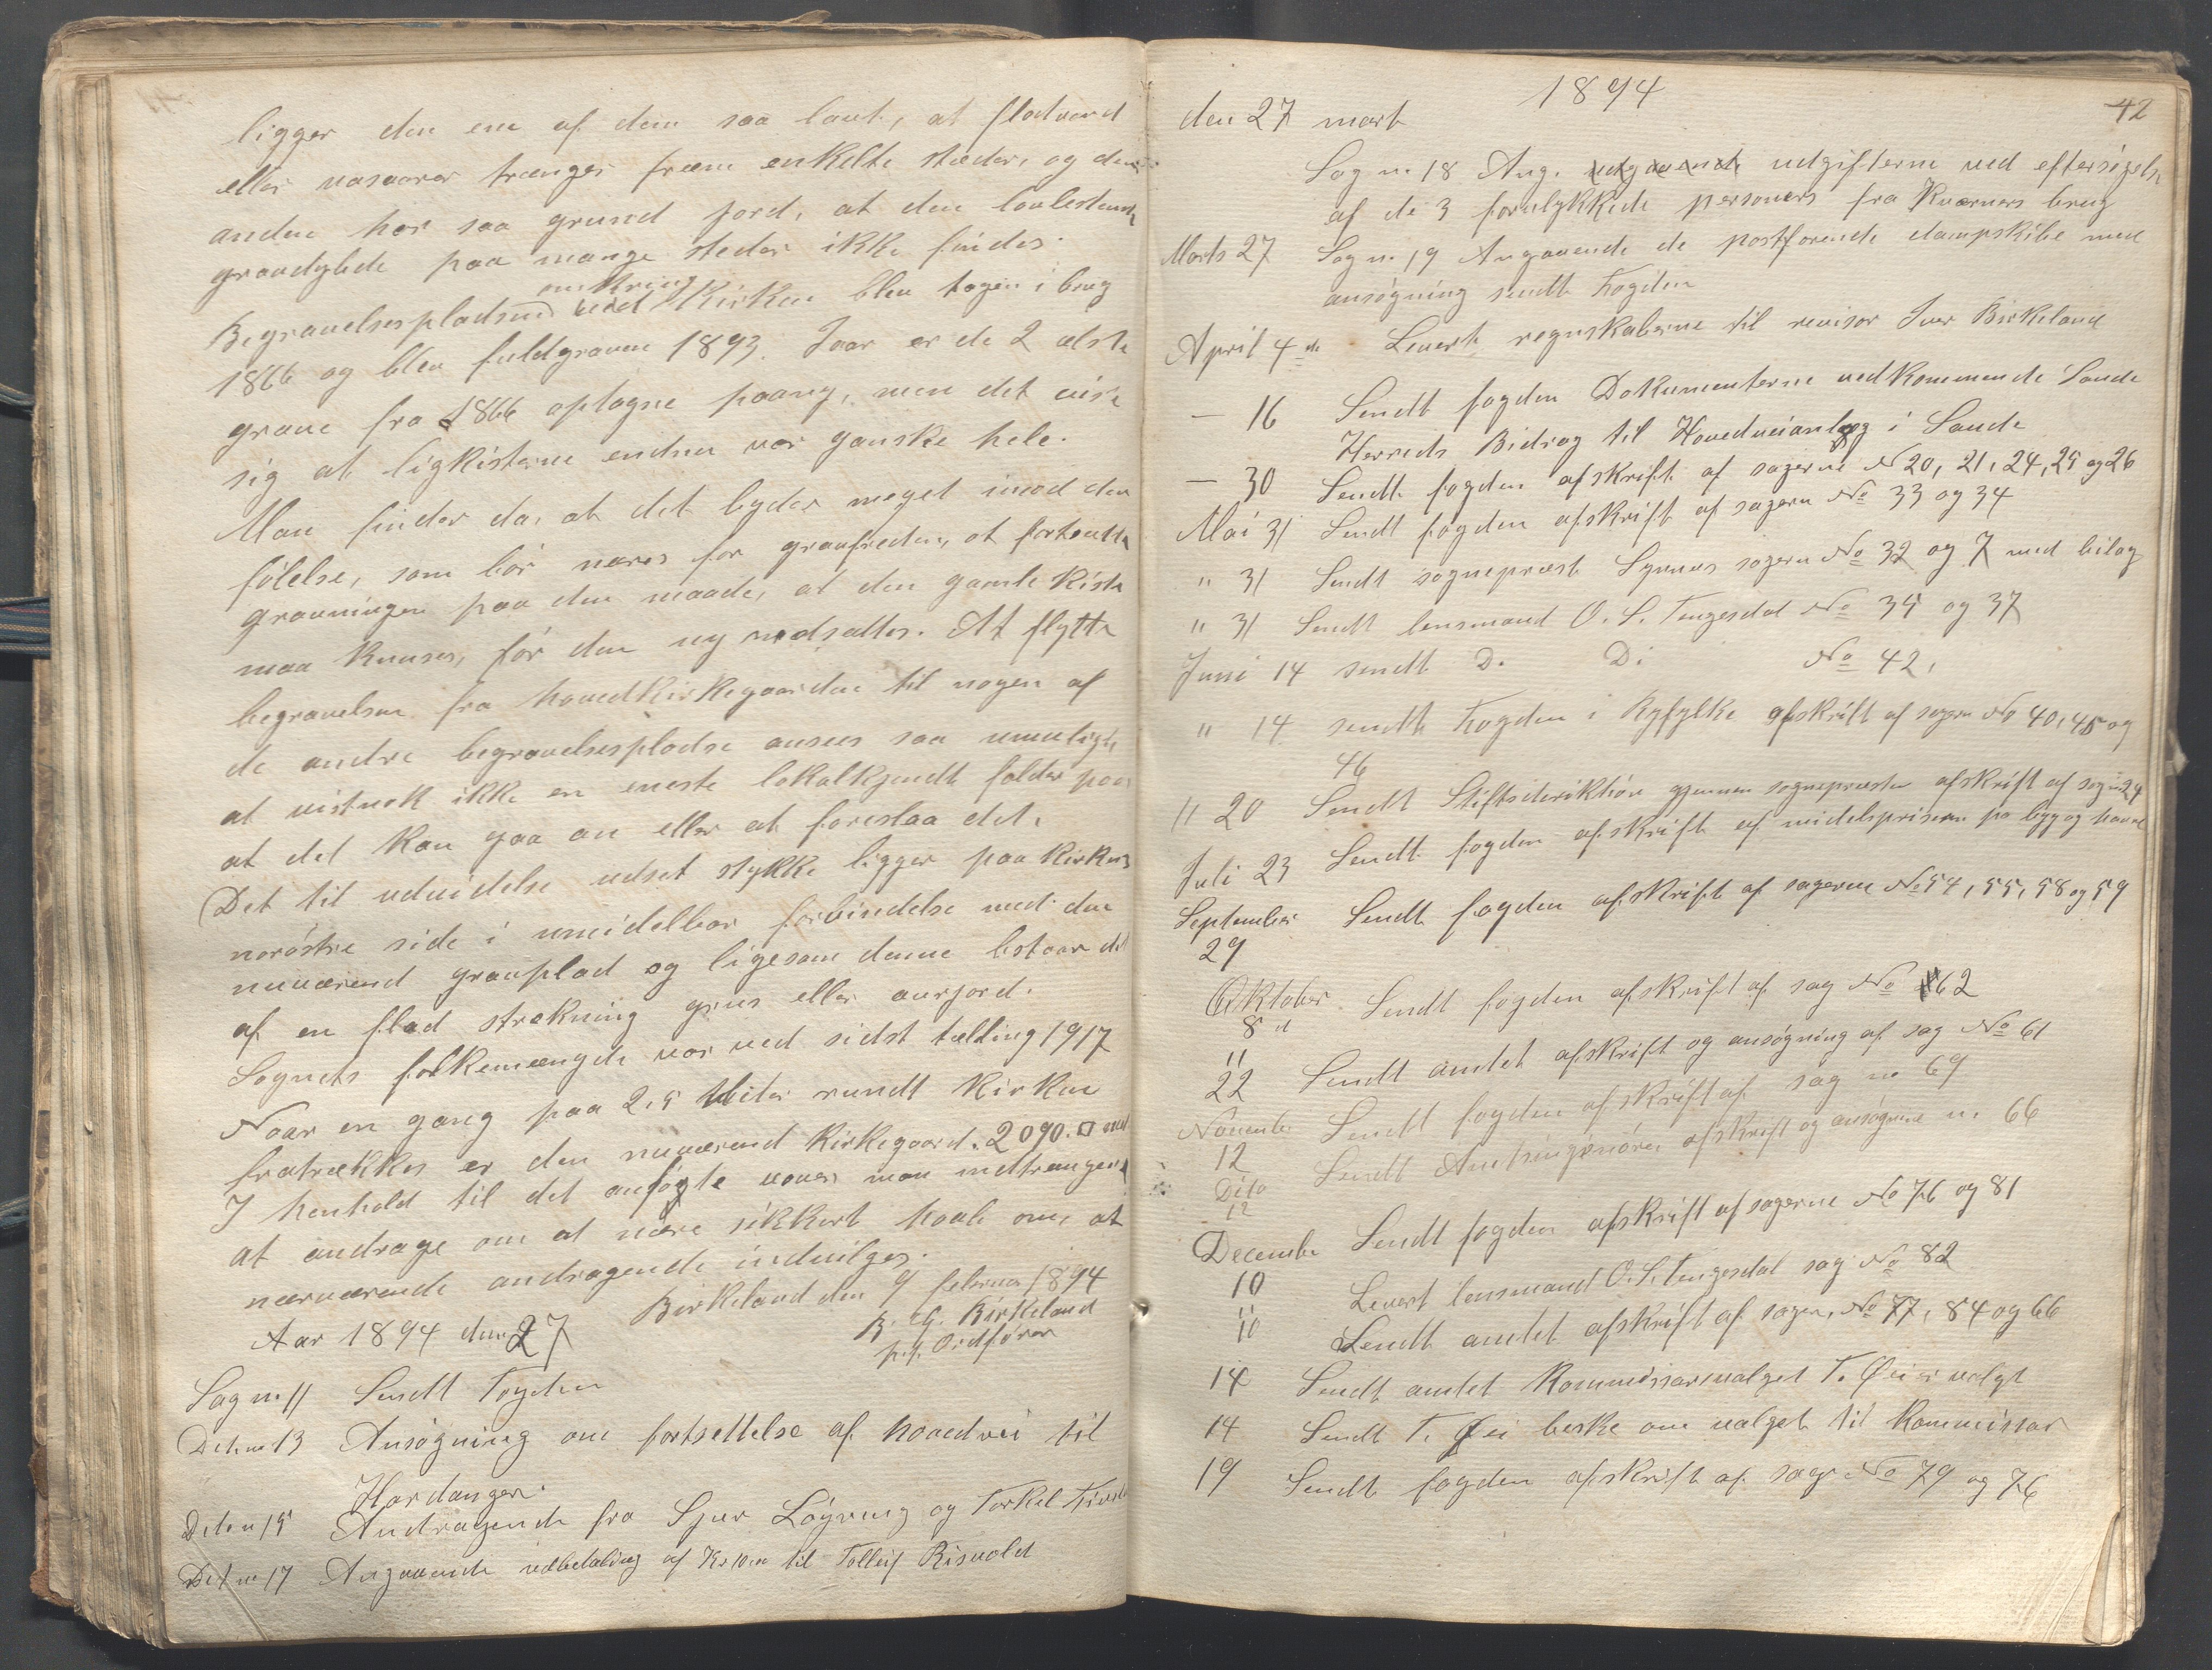 ligger den ene af dem saa lavt, at flodvand
eller vasaarer trænger frem enkelte stæder, og den
anden har saa grund jord, at den lovbestemte
gravdybde paa mange steder ikke findes.
Begravelsespladsen omkring ved Kirken blev tagen i brug
1866 og blev fuldgraven 1893. Iaar er de 2 ælste
grave fra 1866 optagne paany, men det viste
sig at ligkisterne endnu var ganske hele.
Man finder da, at det byder meget imod den
følelse, som bør næres for gravfreden, at fortsætte
gravningen paa den maade, at den gamle kiste
maa knuses, før den ny nedsættes. At flytte
begravelsen fra hovedkirkegaarden til nogen af
de andre begravelsespladse ansees saa umuligt,
at vistnok ikke en eneste lokalkjendt falder paa
at det kan gaa an eller at foreslaa det.
Det til udvidelse udset stykke ligger paa kirkens
norøstre side i umidelbar forbindelse med den
nuværend gravplad og ligesom denne bestaar det
af en flad strækning grus eller aurjord.
Sognets folkemængde var ved sidst tælling 1917
Naar en gang paa 2,5 Meter rundt kirken
fratrækkes er den nuværend Kirkegaard. 2090. □ met
I henhold til det anførte vover man indtrængend
at andrage om at nære sikkert haab om, at
nærværende andragende indvilges.
Birkeland den 9 februar 1894
B. G. Birkeland
p.t. Ordfører
Aar 1894 den 27
Sag no 11 Sendt Fogden
Det no 13 Ansøgning om fortsettelse af hovedvei til
Hardanger.
Det no 15 Andragende fra Sjur Løyning og Torkel
Det no 17 Angaaende udbetaling af Kr 10,00 til Tolleif Risvold
1894
42
den 27 mart
Sag no 18 Ang. udgaaende udgifterne ved eftersøgelse
af de 3 forulykkede personers fra Kværnes brug
Marts 27 Sag no 19 Angaaende de postførende dampskibe med
ansøgning sendt Fogden
April 4de Levert regnskaberne til revisor Iver Birkeland
— 16 Sendt fogden Dokumenterne vedkommende Sande
Herreds Bidrag til Hovedveianlæg i Saude
— 30 Sendt fogden afskrift af sagerne No 20, 21, 24, 25 og 26
Mai 31 Sendt fogden afskrift af sagern No 33 og 34
" 31 Sendt sognepræst Synnes sagern No 32 og 7 med bilag
" 31 Sendt lensmand O. S. Tengesdal No 35 og 37
Juni 14 sendt D. D: No 42,
" 14 sendt Fogden i Ryfylke afskrift af sagern No 40, 45 og
46
" 20 Sendt Stiftsderiktion gjennem sognepræsten afskrift af sag no 24
Juli 23 Sendt fogden afskrift af midelprisern pa byg og havre
September Sendt fogden afskrift af sagerne No 54, 55, 58 og 59
29
Oktober Sendt fogden afskrift af sag No 62
8 d
" Sendt amtet afskrift og ansøgning af sag No 61
22
November Sendt fogden afskrift af sag no 69
12
Dito Sendt Amtsingeniøren afskrift og ansøgnine n. 66
12
December Sendt fogden afskrift af sagerne No 76 og 81
10
" Levert lensmand O. S. Tengesdal sag No 82
10 Sendt amtet afskrift af sagen, No 77, 84 og 66
14 Sendt amtet Kommissærvalget T. Øie er valgt
14 Sendt T. Øei beske om valget til Kommissær
19 Sendt fogden afskrift af sage No 79 og 76